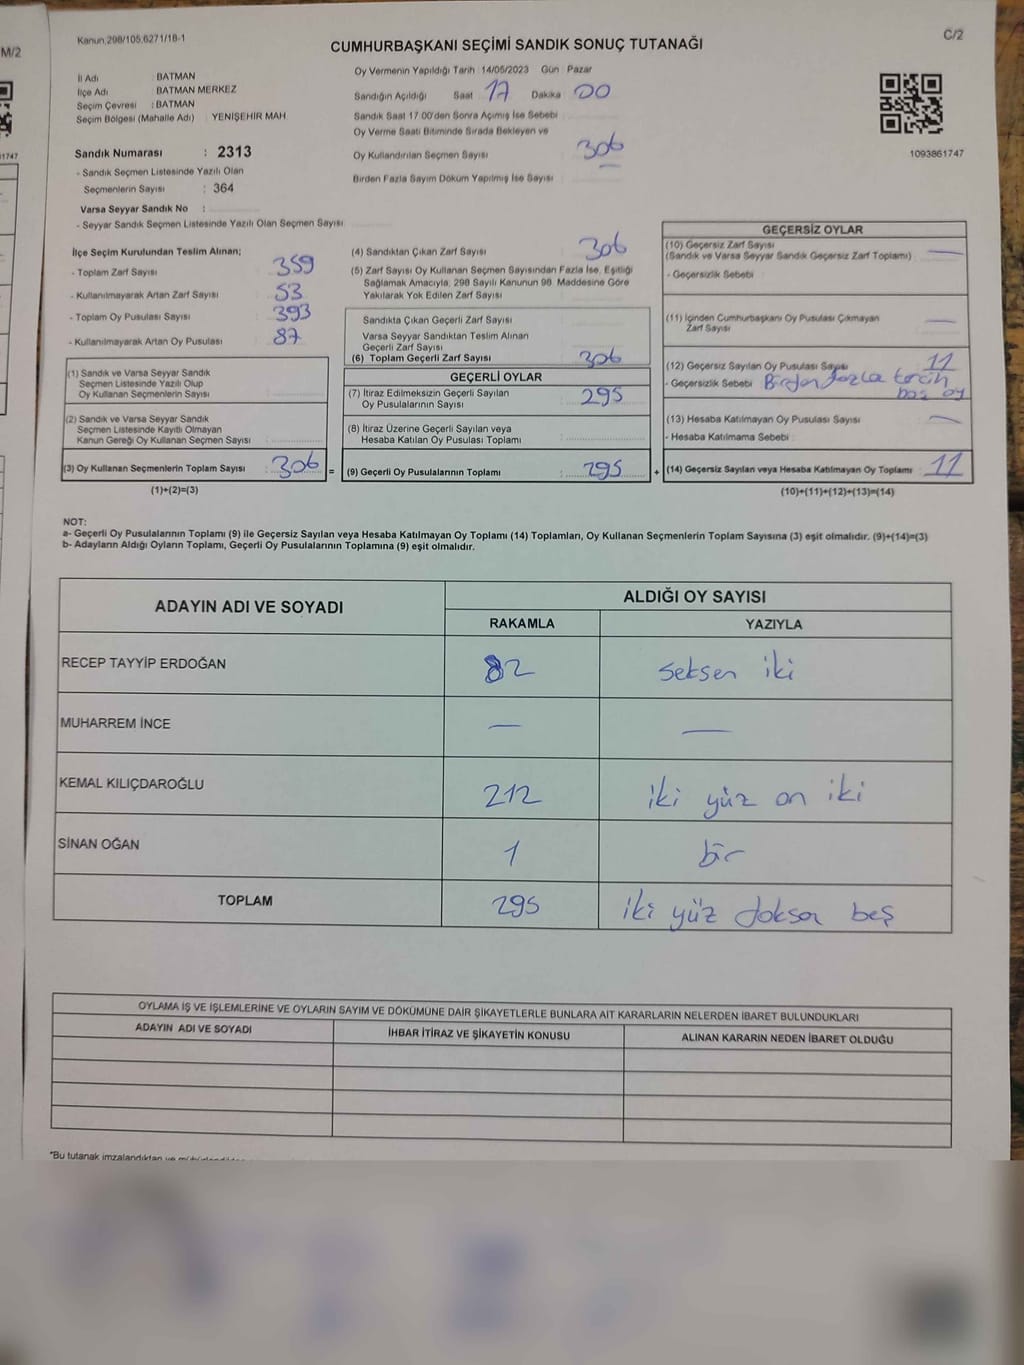 M/2
1747
Kanun 298/105,6271/18-1
C/2
CUMHURBAŞKANI SEÇİMİ SANDIK SONUÇ TUTANAĞI
İl Adı BATMAN
İlçe Adı BATMAN MERKEZ
Seçim Çevresi : BATMAN
Seçim Bölgesi (Mahalle Adı) YENİŞEHİR MAH
Sandık Numarası : 2313
- Sandık Seçmen Listesinde Yazılı Olan
Seçmenlerin Sayısı : 364
Varsa Seyyar Sandık No :
- Seyyar Sandık Seçmen Listesinde Yazılı Olan Seçmen Sayısı
Oy Vermenin Yapıldığı Tarih 14/05/2023 Gün Pazar
Sandığın Açıldığı Saat 17 Dakika 00
Sandık Saat 17 00'den Sonra Açımış İse Sebebi
Oy Verme Saati Bitiminde Sırada Bekleyen ve
Oy Kullandırılan Seçmen Sayısı 306
Birden Fazla Sayım Döküm Yapılmış İse Sayısı
1093861747
İlçe Seçim Kurulundan Teslim Alınan;
- Toplam Zarf Sayısı 359
- Kullanılmayarak Artan Zarf Sayısı 53
- Toplam Oy Pusulası Sayısı 393
- Kullanılmayarak Artan Oy Pusulası 87
(1) Sandık ve Varsa Seyyar Sandık
Seçmen Listesinde Yazılı Olup
Oy Kullanan Seçmenlerin Sayısı
(2) Sandık ve Varsa Seyyar Sandık
Seçmen Listesinde Kayıtlı Olmayan
Kanun Gereği Oy Kullanan Seçmen Sayısı
(3) Oy Kullanan Seçmenlerin Toplam Sayısı : 306 =
(1)+(2)=(3)
(4) Sandıktan Çıkan Zarf Sayısı 306
(5) Zarf Sayısı Oy Kullanan Seçmen Sayısından Fazla İse, Eşitliği
Sağlamak Amacıyla, 298 Sayılı Kanunun 98. Maddesine Göre
Yakılarak Yok Edilen Zarf Sayısı
Sandıkta Çıkan Geçerli Zarf Sayısı
Varsa Seyyar Sandıktan Teslim Alınan
Geçerli Zarf Sayısı
(6) Toplam Geçerli Zarf Sayısı 306
GEÇERLİ OYLAR
(7) İtiraz Edilmeksizin Geçerli Sayılan
Oy Pusulalarının Sayısı : 295
(8) İtiraz Üzerine Geçerli Sayılan veya
Hesaba Katılan Oy Pusulası Toplamı
(9) Geçerli Oy Pusulalarının Toplamı : 295 +
GEÇERSİZ OYLAR
(10) Geçersiz Zarf Sayısı
(Sandık ve Varsa Seyyar Sandık Geçersiz Zarf Toplamı) —
- Geçersizlik Sebebi
(11) İçinden Cumhurbaşkanı Oy Pusulası Çıkmayan
Zarf Sayısı —
(12) Geçersiz Sayılan Oy Pusulası Sayısı 11
- Geçersizlik Sebebi Birden fazla tercih
boş oy
(13) Hesaba Katılmayan Oy Pusulası Sayısı —
- Hesaba Katılmama Sebebi
(14) Geçersiz Sayılan veya Hesaba Katılmayan Oy Toplamı : 11
(10)+(11)+(12)+(13)=(14)
NOT:
a- Geçerli Oy Pusulalarının Toplamı (9) ile Geçersiz Sayılan veya Hesaba Katılmayan Oy Toplamı (14) Toplamları, Oy Kullanan Seçmenlerin Toplam Sayısına (3) eşit olmalıdır. (9)+(14)=(3)
b- Adayların Aldığı Oyların Toplamı, Geçerli Oy Pusulalarının Toplamına (9) eşit olmalıdır.
ADAYIN ADI VE SOYADI ALDIĞI OY SAYISI
RAKAMLA YAZIYLA
RECEP TAYYİP ERDOĞAN 82 seksen iki
MUHARREM İNCE — —
KEMAL KILIÇDAROĞLU 212 iki yüz on iki
SİNAN OĞAN 1 bir
TOPLAM 295 iki yüz doksan beş
OYLAMA İŞ VE İŞLEMLERİNE VE OYLARIN SAYIM VE DÖKÜMÜNE DAİR ŞİKAYETLERLE BUNLARA AİT KARARLARIN NELERDEN İBARET BULUNDUKLARI
ADAYIN ADI VE SOYADI İHBAR İTİRAZ VE ŞİKAYETİN KONUSU ALINAN KARARIN NEDEN İBARET OLDUĞU
*Bu tutanak imzalandıktan ve